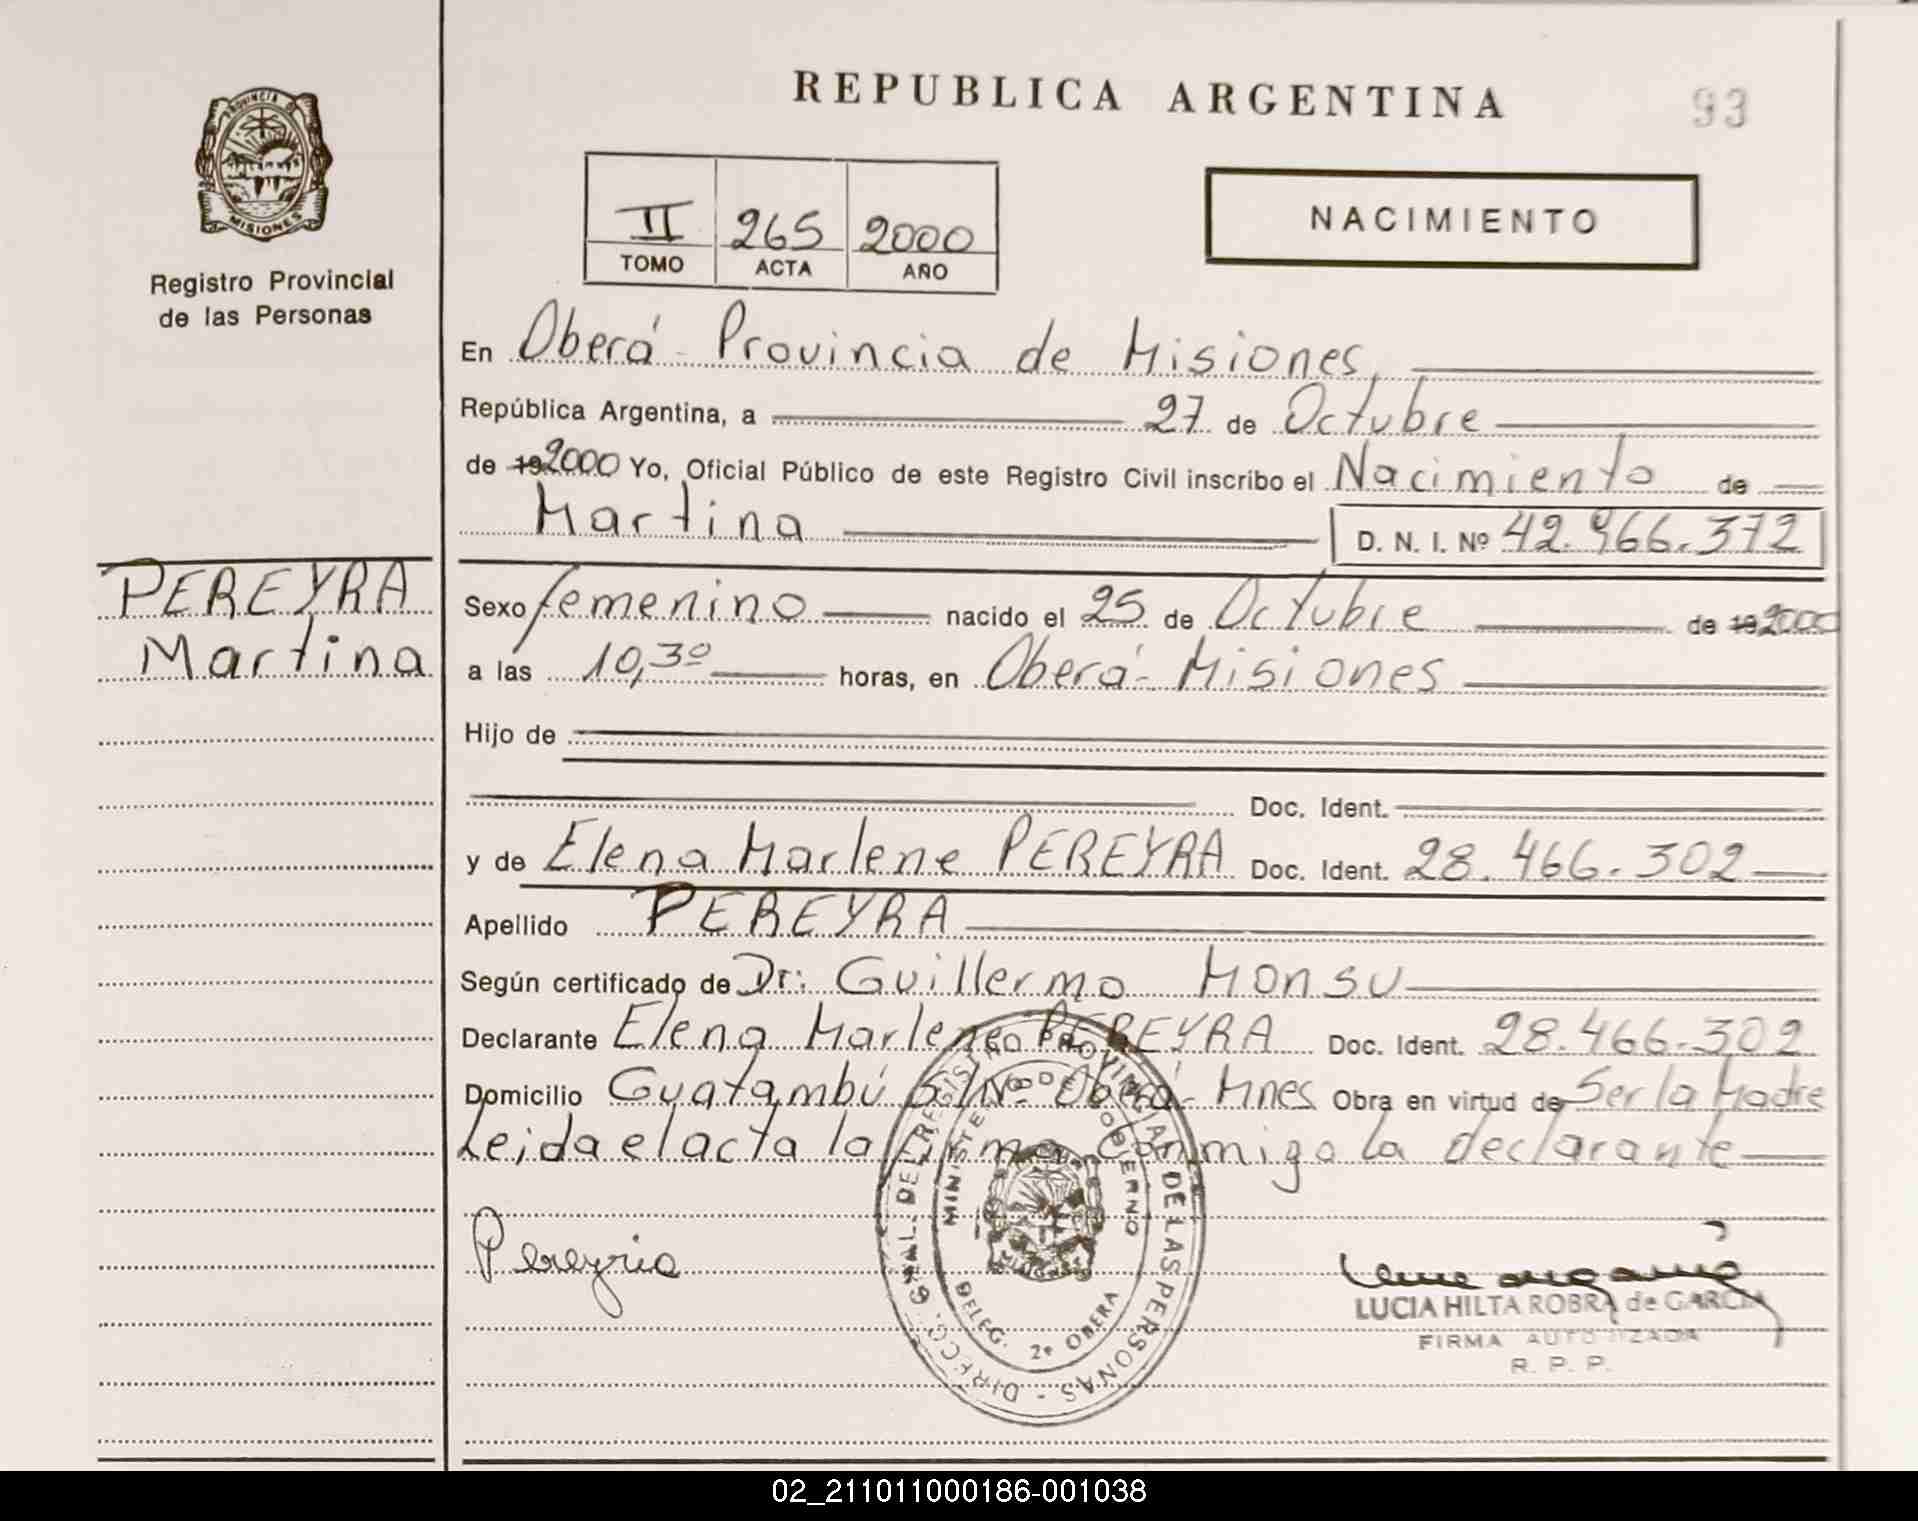 REPUBLICA ARGENTINA
93
PROVINCIA DE
MISIONES
Registro Provincial
de las Personas
II 265 2000
TOMO ACTA AÑO
NACIMIENTO
En Oberá - Provincia de Misiones
República Argentina, a 27 de Octubre
de 19 2000 Yo, Oficial Público de este Registro Civil inscribo el Nacimiento de
Martina D. N. I. Nº 42.966.372
PEREYRA
Martina
Sexo femenino nacido el 25 de Octubre de 19 2000
a las 10,30 horas, en Oberá - Misiones
Hijo de
Doc. Ident.
y de Elena Marlene PEREYRA Doc. Ident. 28.466.302
Apellido PEREYRA
Según certificado de Dr: Guillermo Monsu
Declarante Elena Marlene PEREYRA Doc. Ident. 28.466.302
Domicilio Guatambú S/Nº Oberá - Mnes Obra en virtud de Ser la Madre
Leida el acta la firma conmigo la declarante
Pereyra
DIRECC. GRAL. DEL REGISTRO PROVINCIAL DE LAS PERSONAS -
MINISTERIO DE GOBIERNO
DELEG. 2ª OBERA
LUCIA HILTA ROBRA de GARCIA
FIRMA AUTORIZADA
R. P. P.
02_211011000186-001038